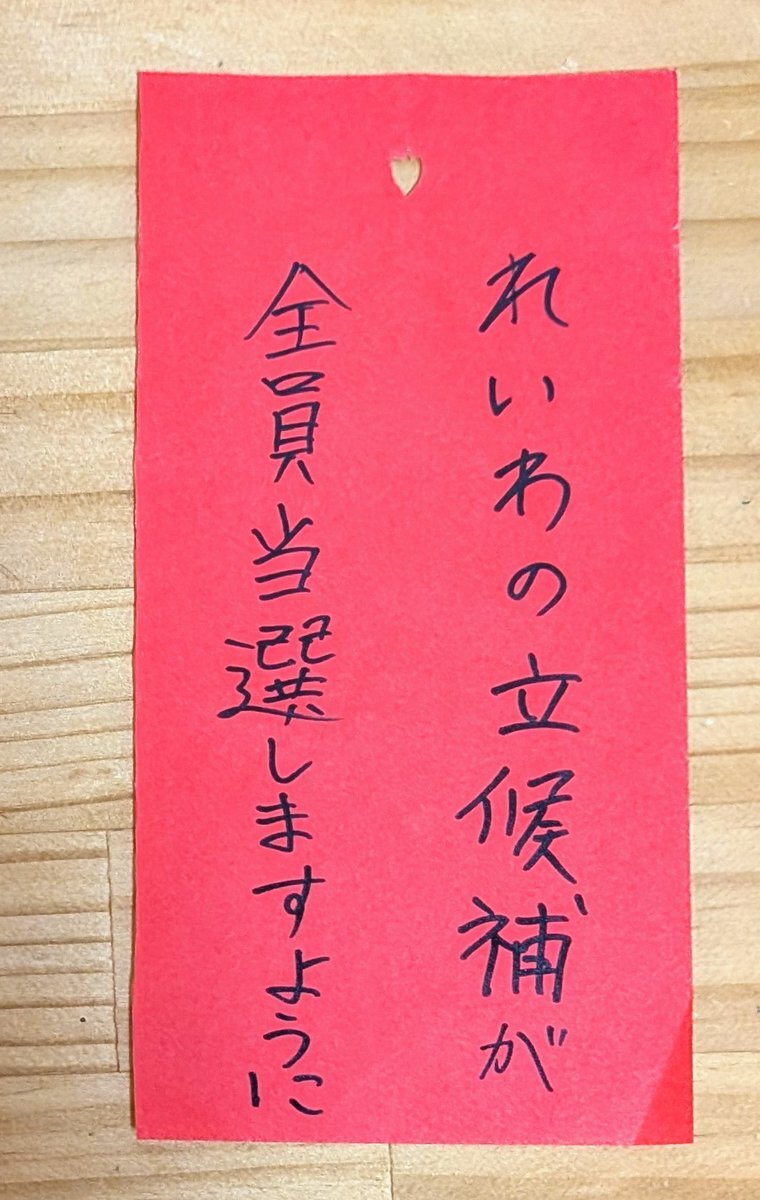 れいわの立候補が
全員当選しますように